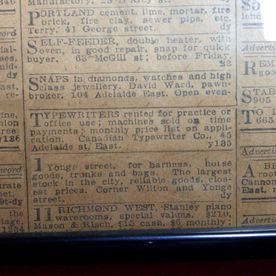 PORTLAND cement lime, mortar, fire
brick, fire clay, sewer pipe, etc.
Terry. 41 George street. dy
SELF-FEEDER, double heater, with
in good repair, snap for quick
buyer. 68 McGill st; before Friday
SNAPS in diamonds, watches and high
class jewellery. David Ward, pawn-
broker. 104 Adelaide East. Open even-
TYPEWRITERS rented for practice or
office use; machines sold on time
payments; monthly price list on appli-
cation. Canadian Typewriter Co., 45
Adelaide st, East. y135
1 Yonge street, for harness, horse
goods, trunks and bags. The largest
stock in the city, reliable goods, clos-
est prices. Corner Wilton and Yonge
street. dy
11 RICHMOND WEST, Stanley piano
warerooms, special values, $210,
Mason & Risch, $10 cash, $6 monthly.
Advertise
REM
STAB
905
Advertise
A
BRIC
Cannin
East.
Advertise